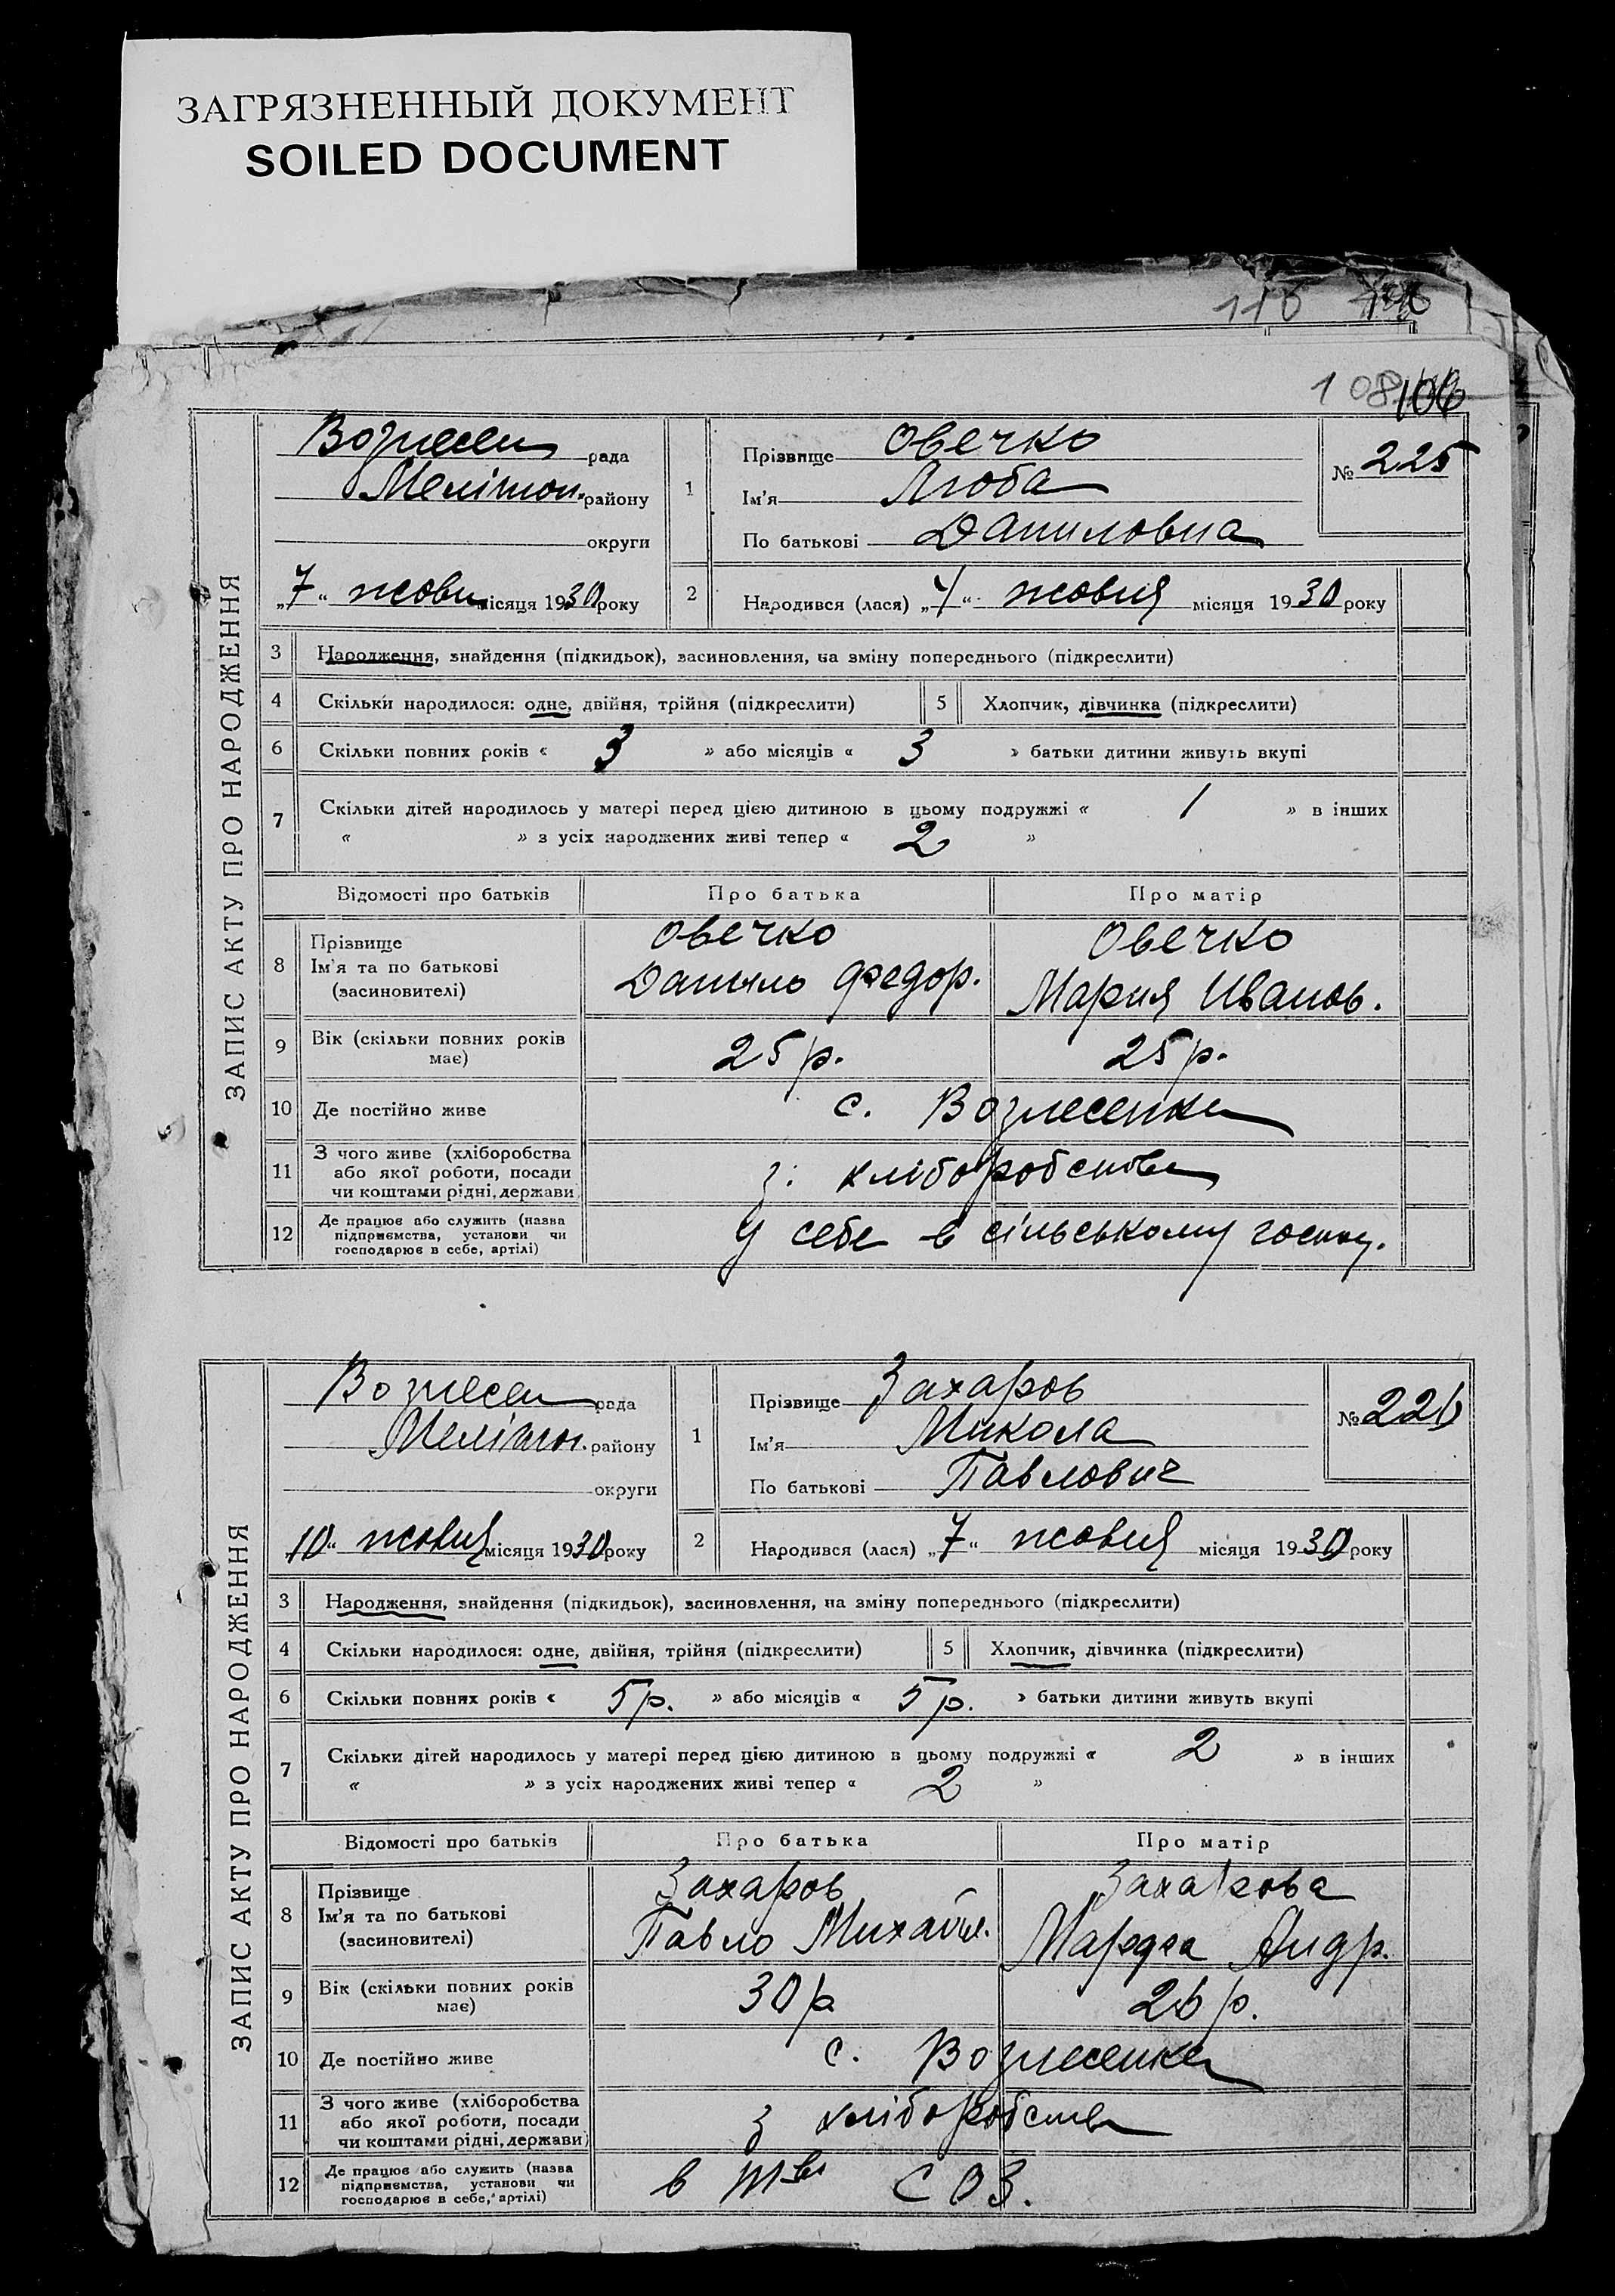 ЗАГРЯЗНЕННЫЙ ДОКУМЕНТ
SOILED DOCUMENT
116
108 106
ЗАПИС АКТУ ПРО НАРОДЖЕННЯ
Вознесен рада
Меліттоп. району
округи
„7“ жовтн місяця 1930 року
1
Прізвище Овечко
Ім'я Люба
По батькові Даниловна
№ 225
2 Народився (лася) „4“ жовтня місяця 1930 року
3 Народження, знайдення (підкидьок), засиновлення, на зміну попереднього (підкреслити)
4 Скільки народилося: одне, двійня, трійня (підкреслити) 5 Хлопчик, дівчинка (підкреслити)
6 Скільки повних років « 3 » або місяців « 3 » батьки дитини живуть вкупі
7 Скільки дітей народилось у матері перед цією дитиною в цьому подружжі « 1 » в інших
« » з усіх народжених живі тепер « 2 »
Відомості про батьків Про батька Про матір
8 Прізвище Ім'я та по батькові (засиновителі)
Овечко Овечко
Данило Федор. Мария Иванов.
9 Вік (скільки повних років має) 25 р. 25 р.
10 Де постійно живе с. Вознесенка
11 З чого живе (хліборобства або якої роботи, посади чи коштами рідні, держави) з: хліборобства
12 Де працює або служить (назва підприємства, установи чи господарює в себе, артілі) У себе в сільському господ.
ЗАПИС АКТУ ПРО НАРОДЖЕННЯ
Вознесен рада
Мелітоп. району
округи
„10“ жовтня місяця 1930 року
1
Прізвище Захаров
Ім'я Микола
По батькові Павлович
№ 226
2 Народився (лася) „7“ жовтня місяця 1930 року
3 Народження, знайдення (підкидьок), засиновлення, на зміну попереднього (підкреслити)
4 Скільки народилося: одне, двійня, трійня (підкреслити) 5 Хлопчик, дівчинка (підкреслити)
6 Скільки повних років « 5 р. » або місяців « 5 р. » батьки дитини живуть вкупі
7 Скільки дітей народилось у матері перед цією дитиною в цьому подружжі « 2 » в інших
« » з усіх народжених живі тепер « 2 »
Відомості про батьків Про батька Про матір
8 Прізвище Ім'я та по батькові (засиновителі)
Захаров Захарова
Павло Михайл. Андр.
9 Вік (скільки повних років має) 30 р 26 р.
10 Де постійно живе с. Вознесенка
11 З чого живе (хліборобства або якої роботи, посади чи коштами рідні, держави) з хліборобства
12 Де працює або служить (назва підприємства, установи чи господарює в себе, артілі) в т-ві СОЗ.